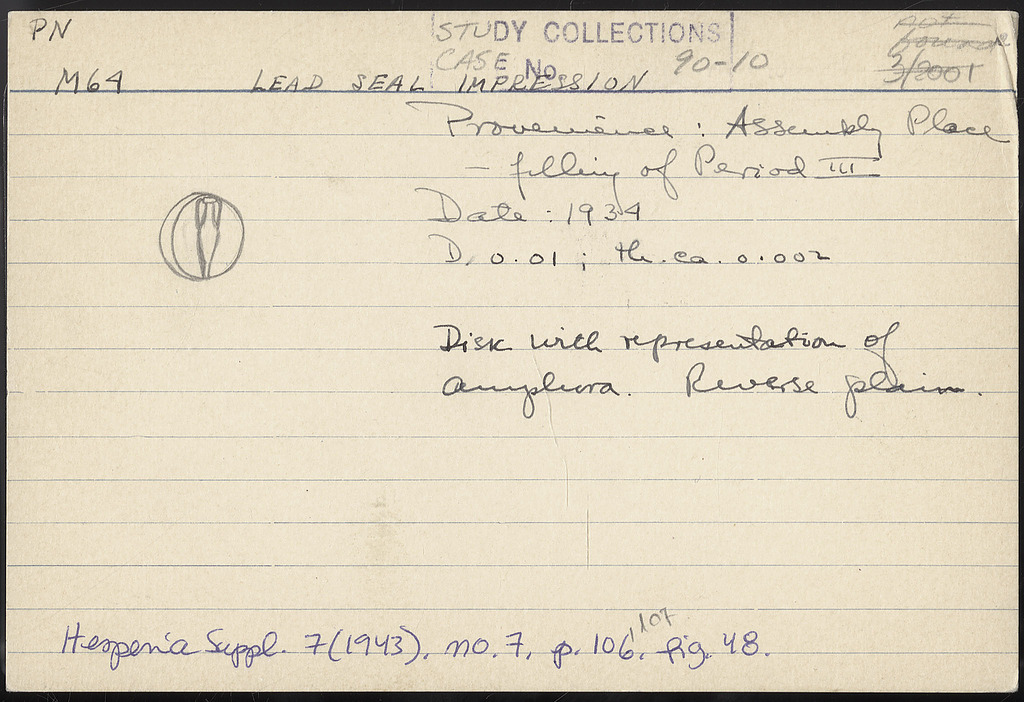 PN
STUDY COLLECTIONS
CASE No. 90-10
not
found
3/2001
M64 LEAD SEAL IMPRESSION
Provenience: Assembly Place
- filling of Period III
Date: 1934
D. 0.01; th. ca. 0.002
Disk with representation of
amphora. Reverse plain.
Hesperia Suppl. 7 (1943), no. 7, p. 106, 107 fig. 48.